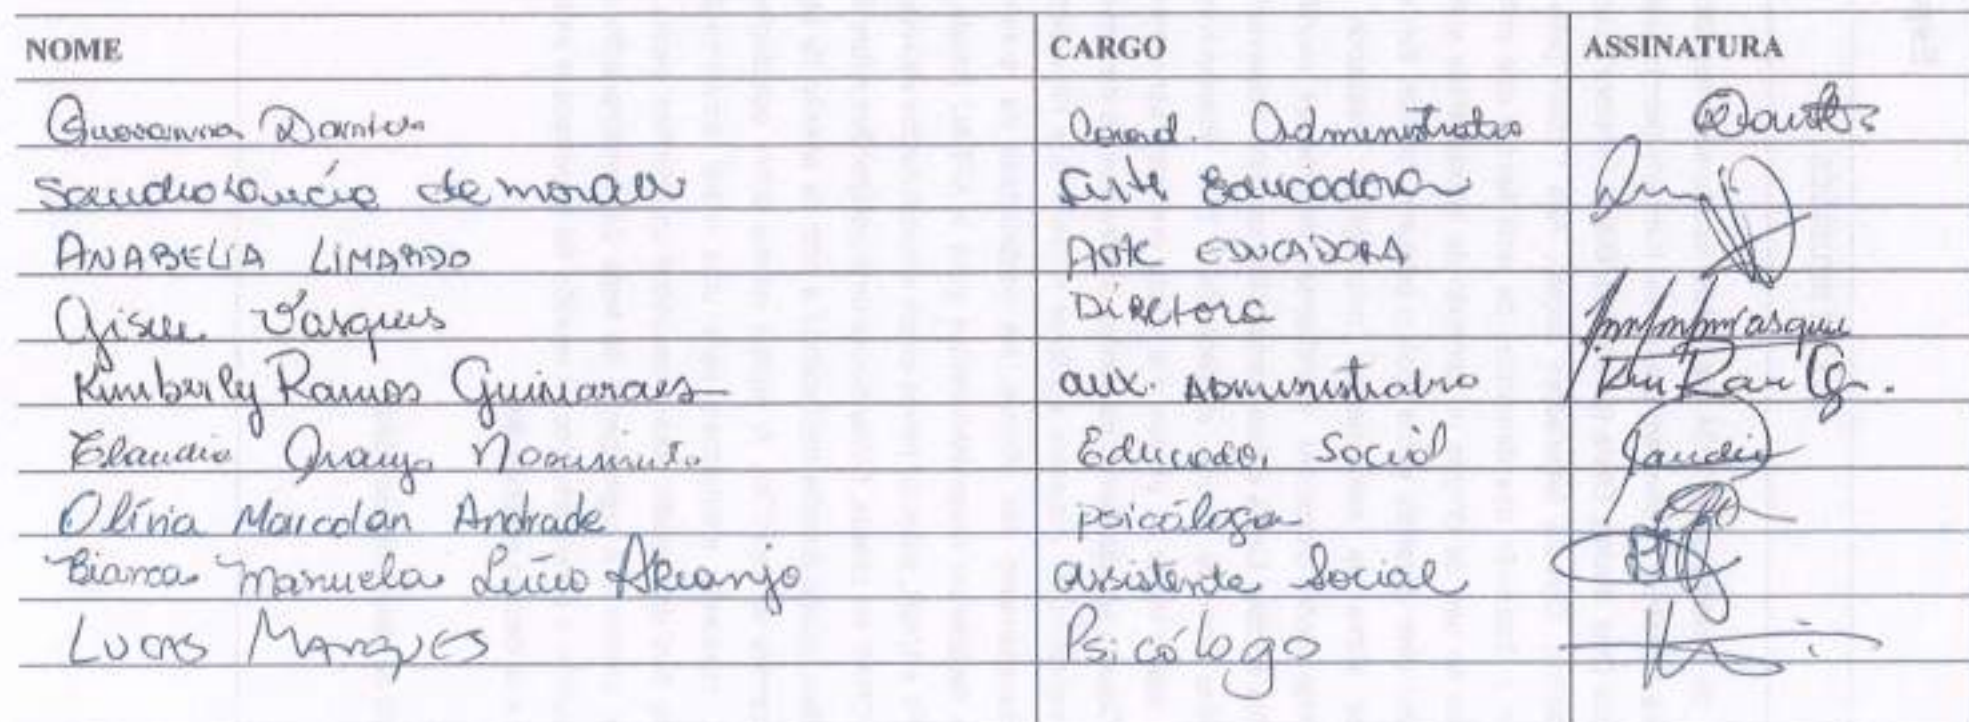 NOME CARGO ASSINATURA
Giovanna Dantas Coord. Administrativo Dantas
Sandra Lucia de moraes Arte Educadora
ANABELIA LIMARDO ARTE EDUCADORA
Gisele Vasques Diretora
Kimberly Ramos Guimaraes aux. Administrativo
Claudia Nascimento Educador Social Claudia
Olívia Marcolan Andrade psicóloga
Bianca Manuela Lúcio Araujo assistente Social
Lucas Marques Psicólogo